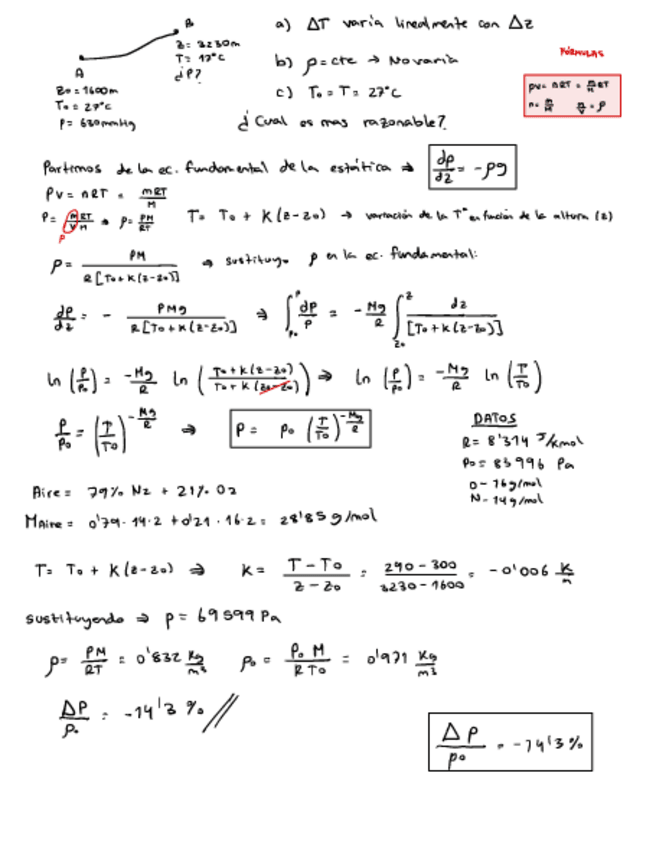 B
z = 3230m
T = 17°C
¿P?
A
z₀ = 1600m
T₀ = 27°C
P = 630mmHg
a) ΔT varía linealmente con Δz
b) ρ = cte → No varía
c) T₀ = T = 27°C
¿Cual es mas razonable?
FÓRMULAS
PV = nRT = m/M RT
n = m/M   m/V = ρ
Partimos de la ec. fundamental de la estática ⇒ dp/dz = -ρg
PV = nRT = mRT/M
P = mRT/VM → ρ = PM/RT   T = T₀ + K(z-z₀) → variación de la Tª en función de la altura (z)
ρ
ρ = PM/R[T₀+K(z-z₀)] ⇒ sustituyo ρ en la ec. fundamental:
dp/dz = - PMg/R[T₀+K(z-z₀)] ⇒ ∫_{P₀}^{P} dP/P = -Mg/R ∫_{z₀}^{z} dz/[T₀+K(z-z₀)]
ln (P/P₀) = -Mg/R ln (T₀+K(z-z₀)/T₀+K(z₀-z₀)) ⇒ ln (P/P₀) = -Mg/R ln (T/T₀)
P/P₀ = (T/T₀)^{-Mg/R} ⇒ P = P₀ (T/T₀)^{-Mg/R}
DATOS
R = 8'314 J/kmol
P₀ = 83996 Pa
O - 16g/mol
N - 14g/mol
Aire = 79% N₂ + 21% O₂
M Aire = 0'79 · 14 · 2 + 0'21 · 16 · 2 = 28'85 g/mol
T = T₀ + K(z-z₀) ⇒ K = T-T₀/z-z₀ = 290-300/3230-1600 = -0'006 K/m
sustituyendo ⇒ P = 69599 Pa
ρ = PM/RT = 0'832 Kg/m³   ρ₀ = P₀ M/R T₀ = 0'971 Kg/m³
Δρ/ρ₀ = -14'3 %
Δρ/ρ₀ = -14'3%